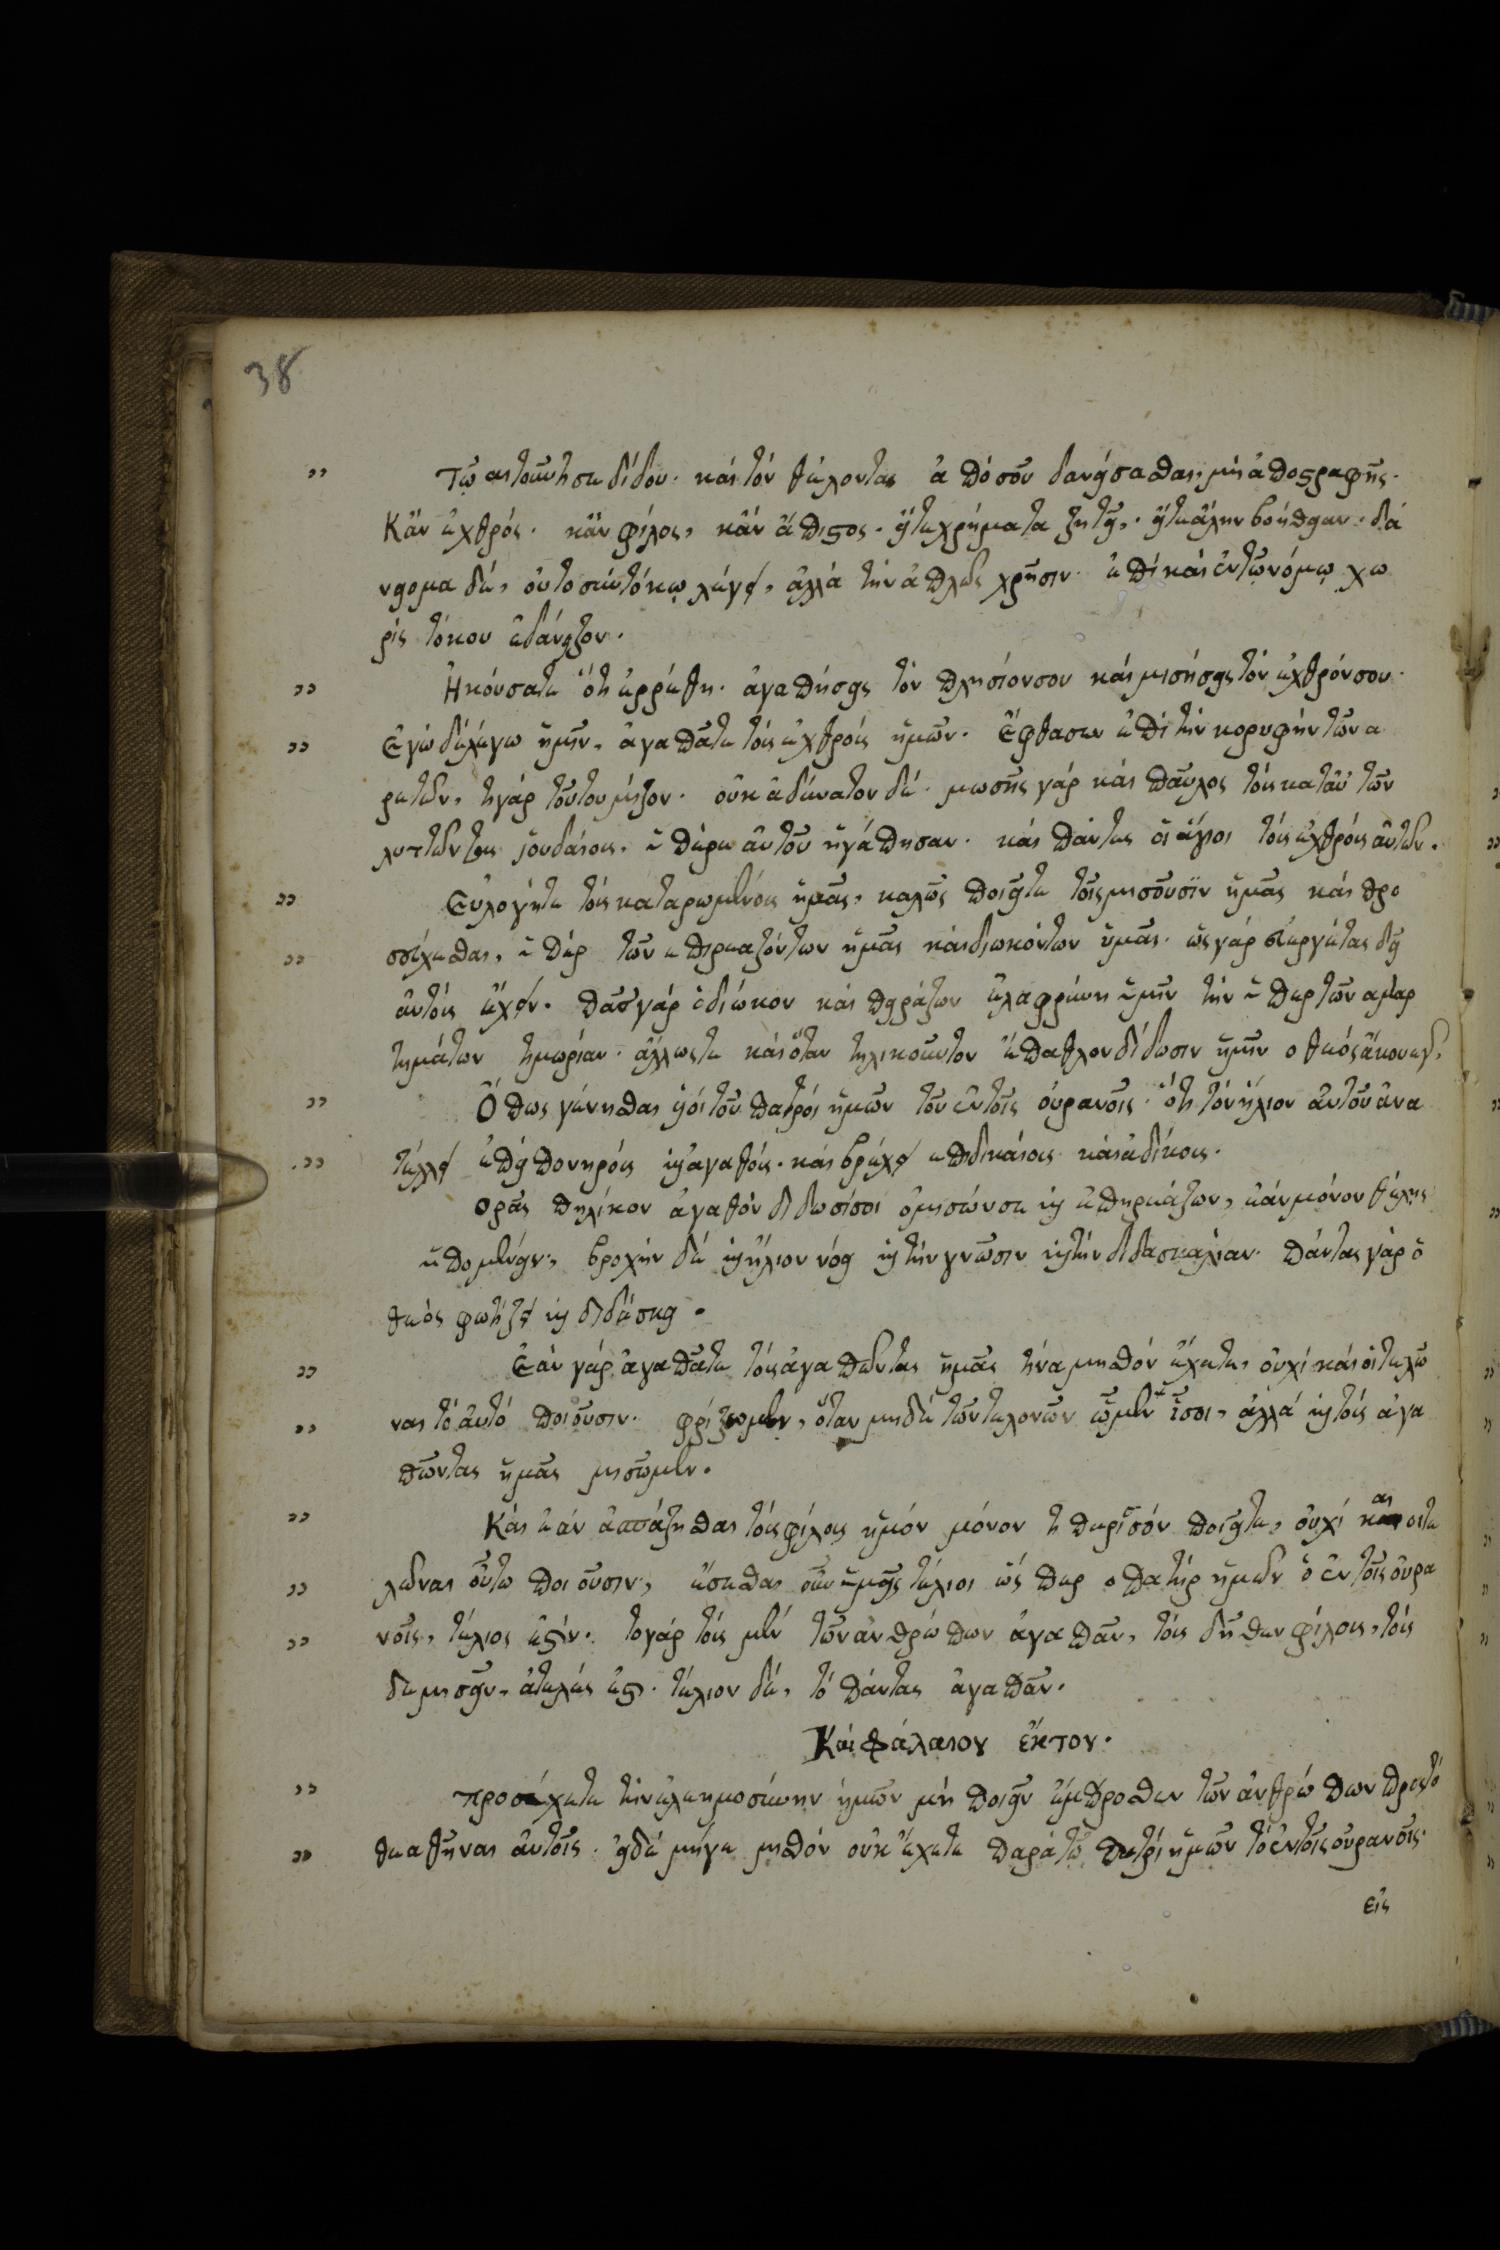 38
τῷ αιτοῦντησε δίδου. καὶ τόν θέλοντας ἀπό σοῦ δανείσασθαι, μὴ ἀποςραφῆς.
Κἄν ἐχθρός. κἄν φίλος, κἄν ἄπιςος. εἴτε χρήματα ζητεῖ,. εἴτε ἄλην βοήθειαν. δά
νειομα δέ, οὐ το σύν τόκῳ λέγει, ἀλλά τήν ἁπλῶς χρῆσιν. ἐπί καὶ ἐν τῶ νόμῳ χω
ρίς τόκου ἐδάνειζον.
Ηκούσατε ὅτι ἐρρέθη. ἀγαπήσεις τόν πλησίονσου καὶ μισήσεις τόν ἐχθρόνσου.
Ἐγώ δέ λέγω ἡμῖν, ἀγαπᾶτε τοὺς ἐχθρούς ἡμῶν. Ἔφθασεν ἐπί τήν κορυφήν τῶν α
ρετῶν, τι γάρ τούτου μήζον. οὐκ ἀδύνατον δέ. μωσῆς γάρ καὶ παῦλος τοὺς κατ᾽ αὐτῶν
λυττῶντας ἰουδαίους, ὑπέρ ἑαυτοῦ ἠγάπησαν. καὶ πάντες οἱ ἅγιοι τοὺς ἐχθρούς αὐτῶν.
Εὐλογήτε τούς καταρωμένους ἡμᾶς, καλῶς ποιεῖτε τοῖς μισοῦσϊν ἡμᾶς καὶ προ
σεύχεσθαι, ὑπέρ τῶν επιρεαζόντων ἡμᾶς καὶ διωκόντων ὑμᾶς. ὡς γάρ εὐεργέτας δεῖ
αὐτούς ἔχειν. πᾶσ γάρ ὁ διώκον καὶ πειράζων ἐλαφρύνη ὑμῖν τήν ὑπερ τῶν αμαρ
τημάτων τιμωρίαν. ἄλλως τε καὶ ὅταν τηλικοῦντον ἔπαθλον δίδωσιν ἡμῖν ο θεός ἄκουε γ,
Ὅπως γένησθαι ὑοί τοῦ πατρός ἡμῶν τοῦ ἐν τοῖς οὐρανοῖς. ὅτι τόν ἥλιον αὐτοῦ ἀνα
τέλλει ἐπί πονηρούς κ᾽ ἀγαθούς. καὶ βρέχει επι δικαίους καὶ ἀδίκους.
Ορᾶς πηλίκον ἀγαθόν διδωσίσοι ὁ μισῶνσε κ᾽ ἐπηρεάζων, ἐάν μόνον θέλης
ὑπομένειν, βροχήν δέ κ᾽ ἥλιον νόει κ᾽ τήν γνῶσιν κ᾽ τήν διδασκαλίαν. πάντας γάρ ὁ
θεός φωτίζει κ᾽ διδάσκει.
Εάν γάρ ἀγαπᾶτε τούς ἀγαπῶντας ἡμᾶς τίνα μισθόν ἔχετε, οὐχί καὶ οἱ τελῶ
ναι τό αὐτό ποιοῦσιν. φρίξωμεν, ὅταν μηδέ τῶν τελονῶν ὦμεν ἶσοι, ἀλλά κ᾽ τούς ἀγα
πῶντας ἡμᾶς μισῶμεν.
Καὶ ἐάν ἀσπάζησθαι τούς φίλους ἡμόν μόνον τι περισσόν ποιεῖτε, οὐχί και οι τε
λῶναι οὕτω ποιοῦσιν, ἔσεσθαι οὖν ὑμεῖς τέλιοι ὥσπερ ο πατήρ ἡμῶν ὁ ἐν τοῖς οὐρα
νοῖς, τέλιος ἐςίν. το γάρ τούς μέν τῶν ἀνθρώπων ἀγαπᾶν, τούς δηθεν φίλους, τούς
δε μισεῖν, ἀτελές ἐςι. τέλιον δέ, τό πάντας ἀγαπᾶν.
Καιφάλαιον ἕκτον.
Προσέχετε τήν ἐλεημοσύνην ἡμῶν μή ποιεῖν ἔμπροσθεν τῶν ἀνθρώπων πρός τό
θεαθῆναι αὐτοῖς. ειδέ μήγε μισθόν οὐκ ἔχετε παρά τῶ πατρί ἡμῶν τό ἐν τοῖς οὐρανοῖς.
εἰς